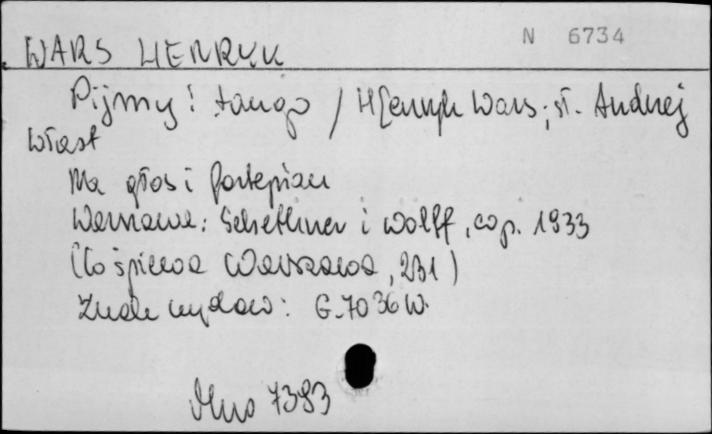 N 6734
WARS HENRYK
Pijmy! tango / H[enryk Wars; sł. Andrzej
Włast
Na głos i fortepian
Warszawa: Gebethner i Wolff, cop. 1933
(Co śpiewa Warszawa, 231)
Znak wydaw: G.7036W.
Mus 7393